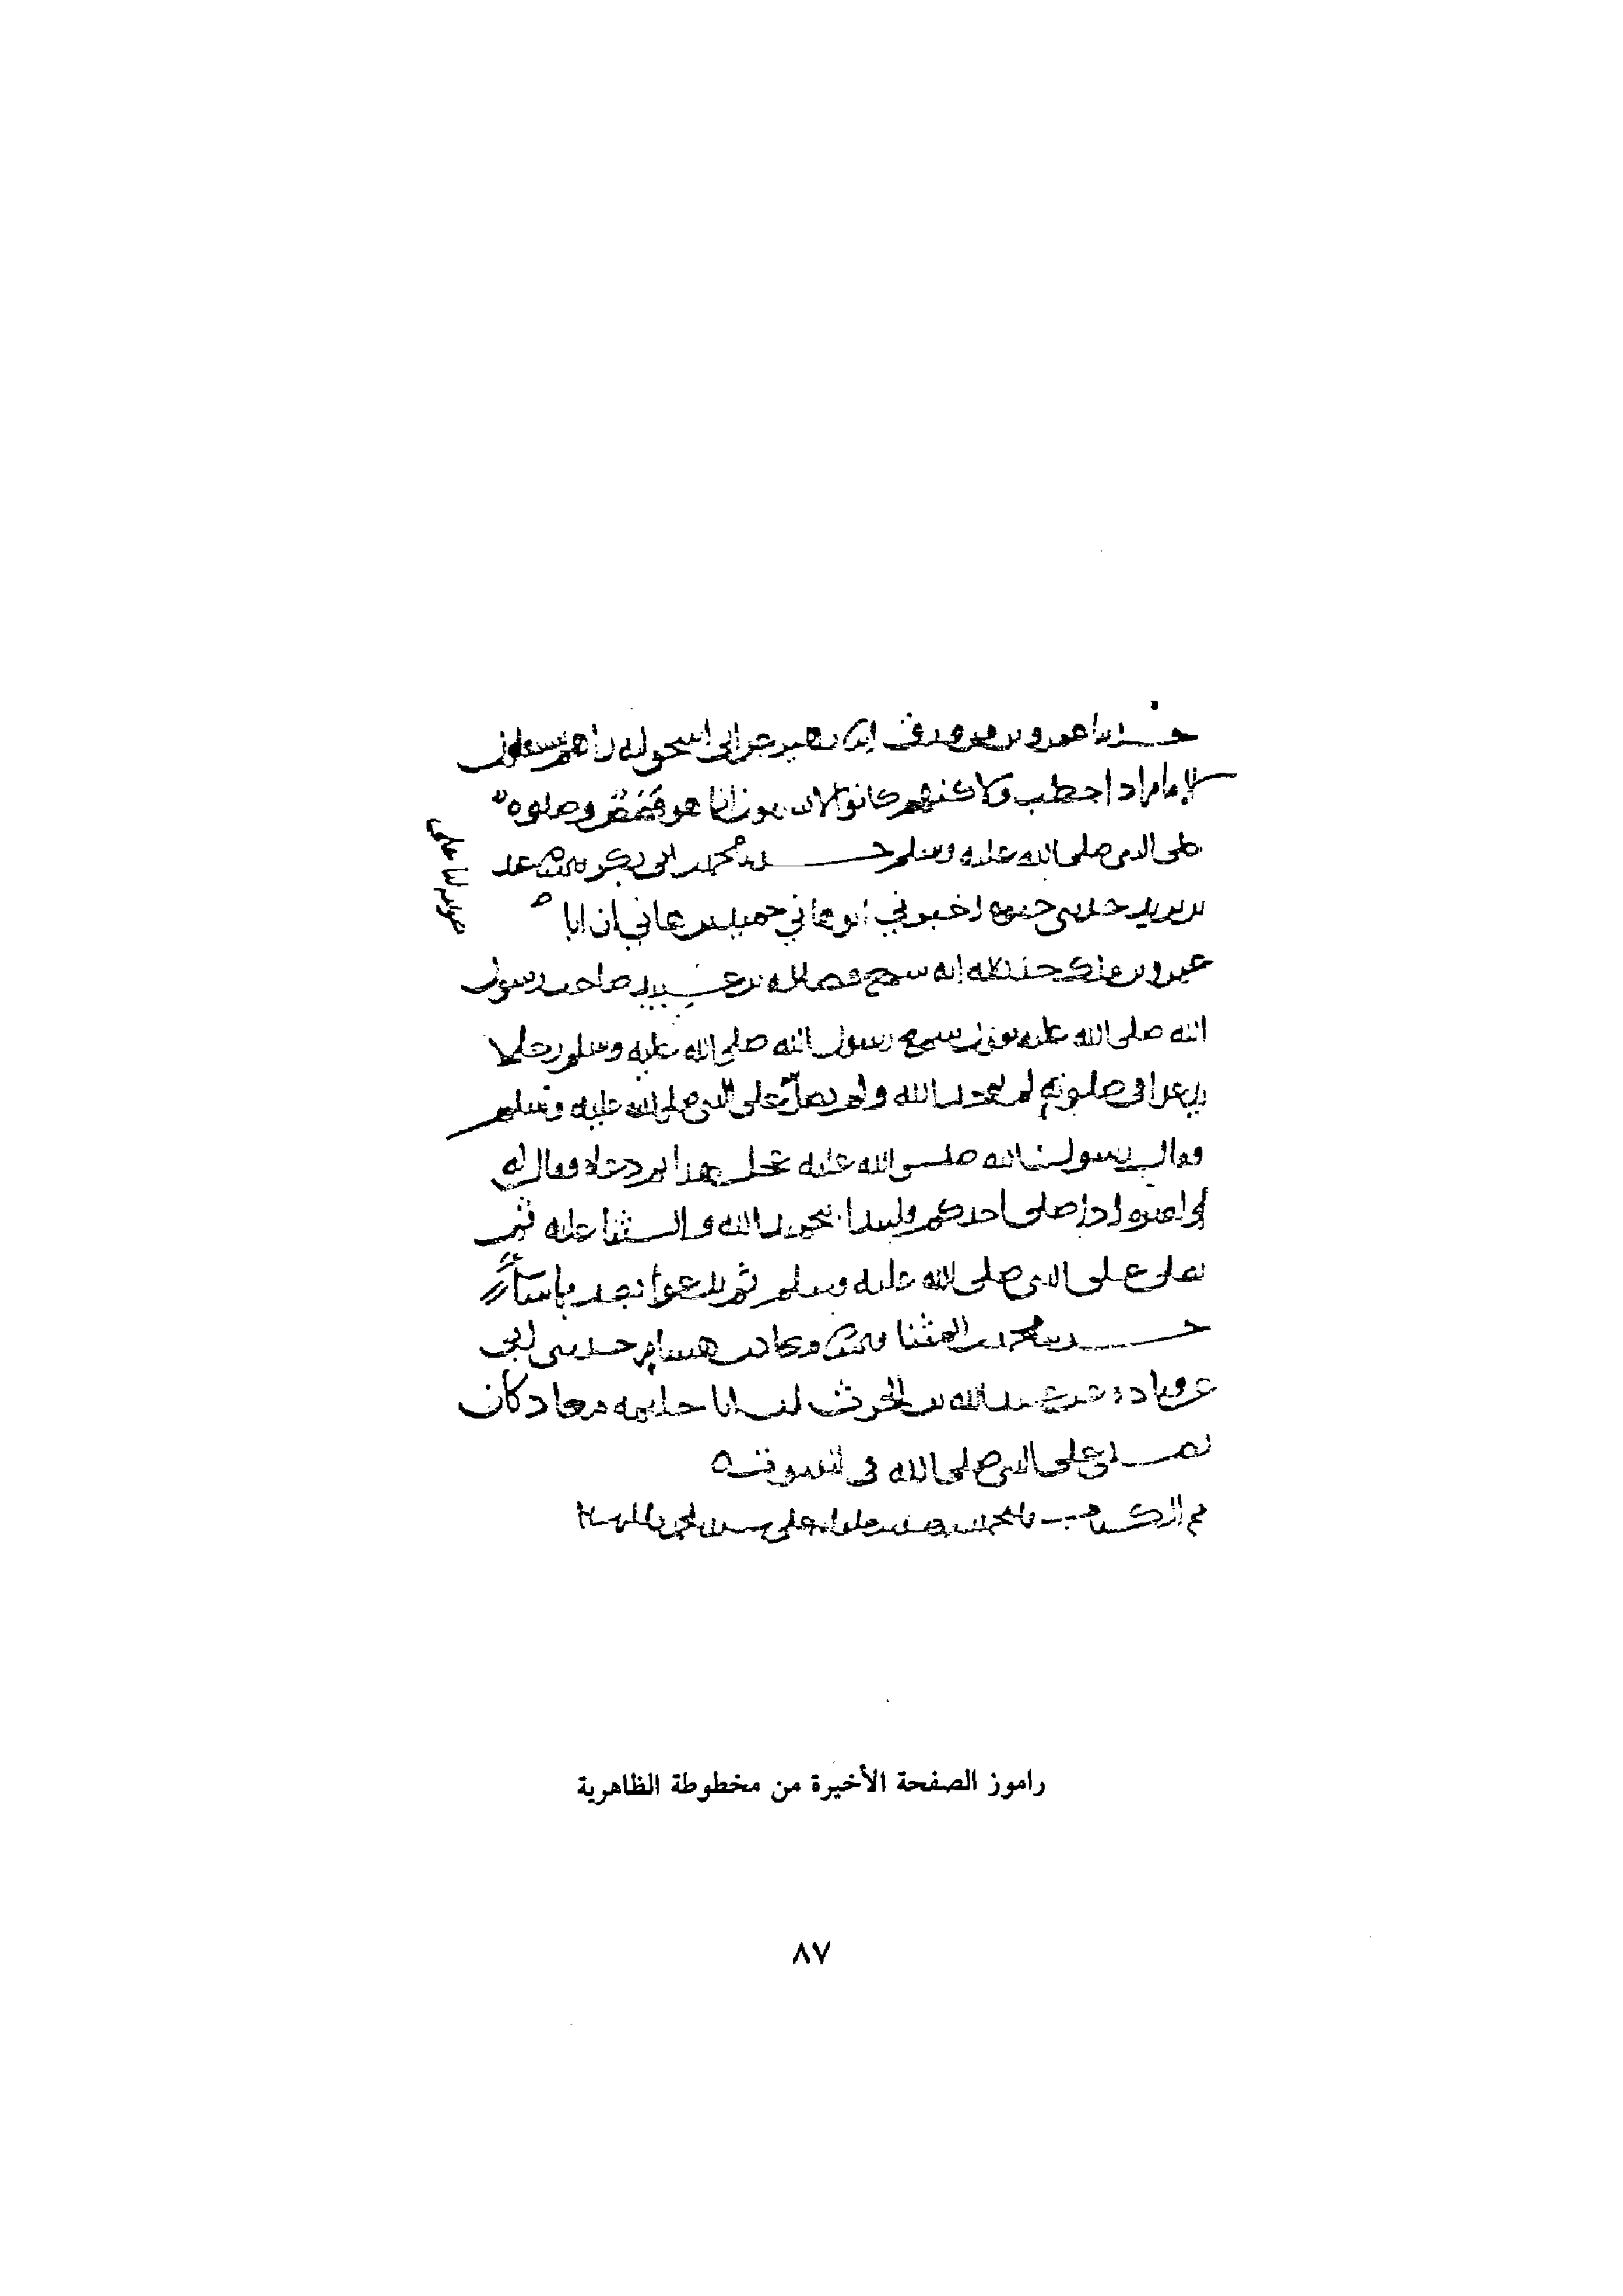 حدثنا عمرو بن مرزوق زهير عن أبي اسحق انه راهم يستقبلون
الإمام اذا خطب ولاكنهم كانوا لا انما هو قصص وصلوه
على النبي صلى الله عليه وسلم حدثنا محمد بن أبي بكر عبد الله
بن يزيد حدثني حيوه اخبرني أبو هاني حميد بن هاني ان ابا
عمرو بن ملك حدثه انه سمع فضاله بن عبيد صاحب رسول
الله صلى الله عليه يقول سمع رسول الله صلى الله عليه وسلم رجلا
يدعو في صلوته لم يحمد الله ولم يصل على النبي صلى الله عليه وسلم
فقال رسول الله صلى الله عليه عجل هذا ثم دعاه فقال له
أو لغيره إذا صلى أحدكم وليبدا بتحميد الله والثنا عليه ثم
ليصلي على النبي صلى الله عليه وسلم ثم ليدعوا بعد بما شا
حدثنا محمد بن المثنا معاذ بن هشام حدثني أبي
عن قتادة عن عبد الله بن الحرث أن أبا حليمه معاذ كان
يصلي على النبي صلى الله في القنوت
تم الكتاب
راموز الصفحة الأخيرة من مخطوطة الظاهرية
٨٧